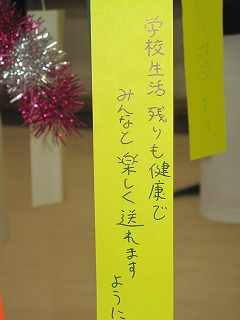 学校生活 残りも健康で
みんなと楽しく送れます
ように